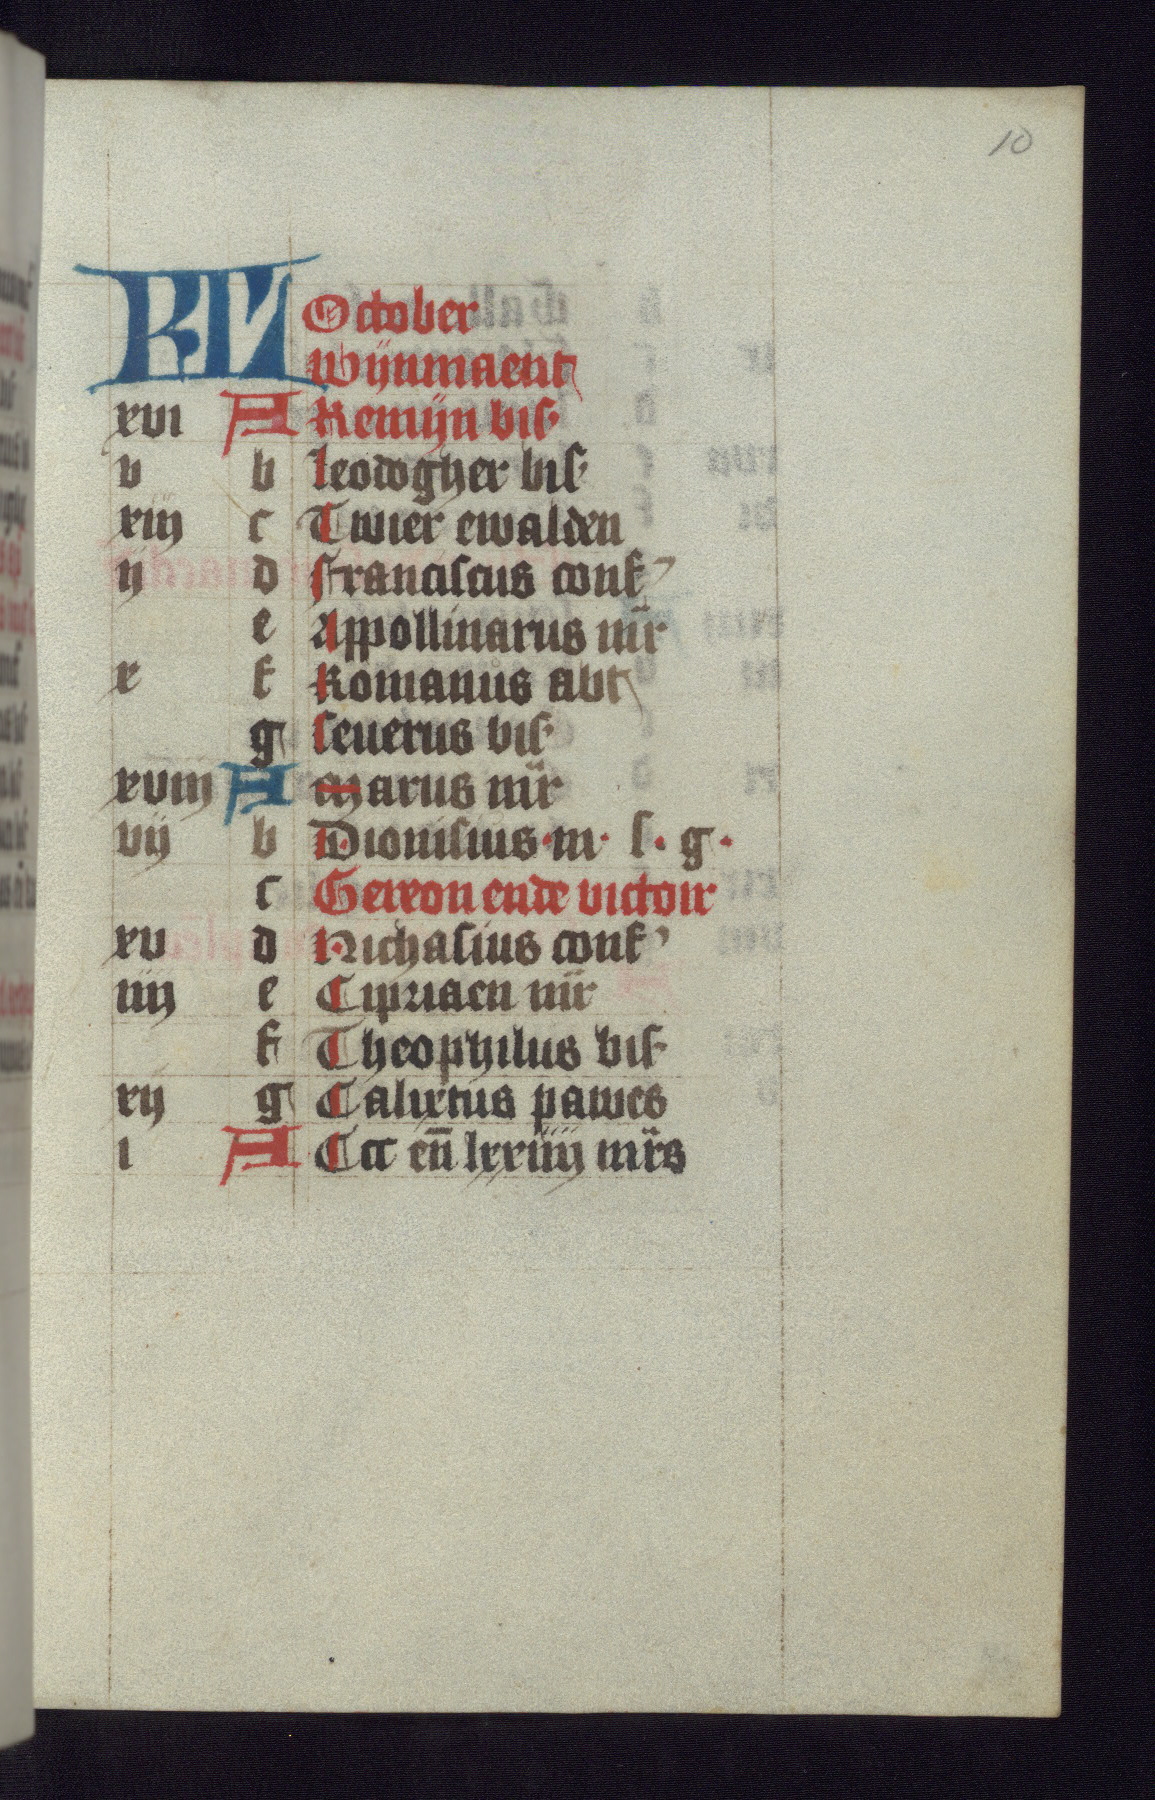 10
KL October
wijnmaent
xvi A Remijn bis
v b Leodogher bis
xiij c Twier ewalden
ij d Franciscus conf
e Appollinarus mr
x f Romanus abt
g Seuerus bis
xviij A Marus mr
vij b Dionisius m. s. g.
c Gereon ende victoir
xv d Nichasius conf
iiij e Cipriaen mr
f Theophilus bis
xij g Calixtus pawes
i A CCC en lxxiiij mrs